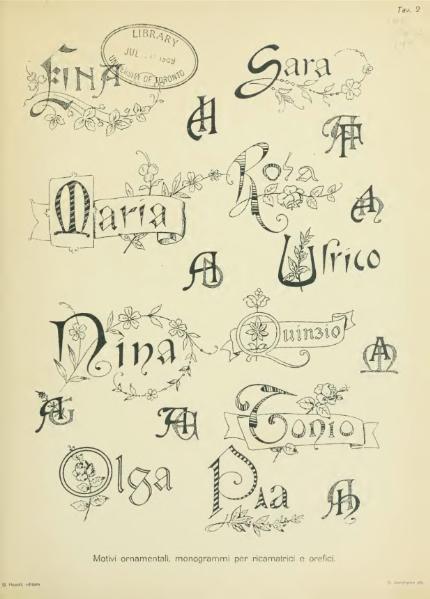 Tav. 2
LIBRARY
UNIVERSITY OF TORONTO
Lina
Sara
Maria
Rosa
Ulrico
Nina
Quinzio
Tonio
Olga
Pia
Motivi ornamentali, monogrammi per ricamatrici e orefici.